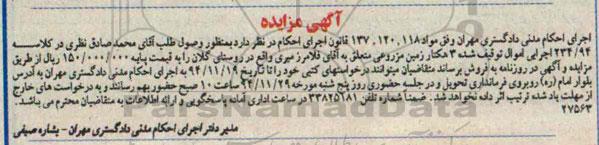 آگهی مزایده
اجرای احکام مدنی دادگستری مهران وفق مواد ۱۱۸، ۱۲۰، ۱۳۷ قانون اجرای احکام در نظر دارد بمنظور وصول طلب آقای محمد صادق نظری در کلاسه
۲۳۴/۹۴ اجرایی اموال توقیف شده ۳ هکتار زمین مزروعی متعلق به آقای فلامرز میری واقع در روستای گلان را به قیمت پایه ۱۵۰/۰۰۰/۰۰۰ ریال از طریق
مزایده و آگهی در روزنامه به فروش برساند متقاضیان میتوانند درخواستهای کتبی خود را تا تاریخ ۹۴/۱۱/۱۹ به اجرای احکام مدنی دادگستری مهران به آدرس
بلوار امام (ره) روبروی فرمانداری تحویل و در جلسه حضوری روز پنج شنبه مورخه ۹۴/۱۱/۲۹ ساعت ۱۰ صبح حضور بهم رسانند و به درخواست های خارج
از مهلت یاد شده ترتیب اثر داده نخواهد شد. ضمنا شماره تلفن ۳۳۸۲۵۱۸۱ در ساعت اداری آماده پاسخگویی و ارائه اطلاعات به متقاضیان محترم می باشد.
۲۷۵۶۳
مدیر دفتر اجرای احکام مدنی دادگستری مهران - بشاره صیفی
ParsNamadData